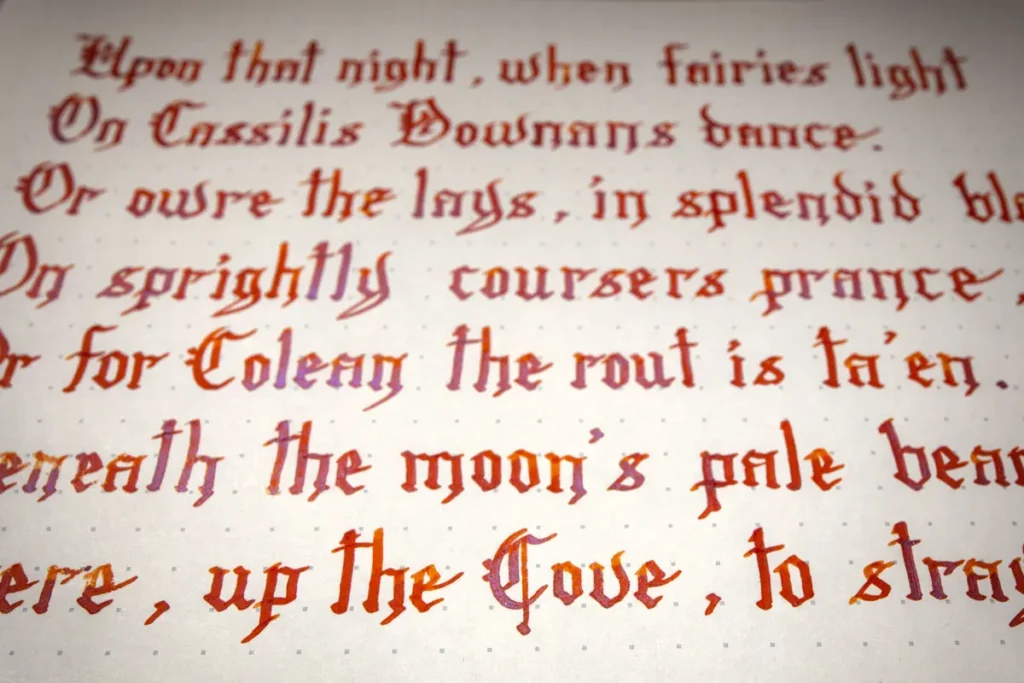 Upon that night, when fairies light
On Cassilis Downans dance.
Or owre the lays, in splendid bla
On sprightly coursers prance,
r for Colean the rout is ta'en.
eneath the moon's pale bean
ere, up the Cove, to stray